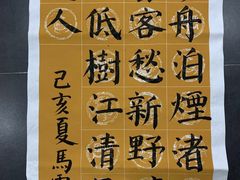 舟泊煙者
客愁新野
低樹江清
人
己亥夏馬